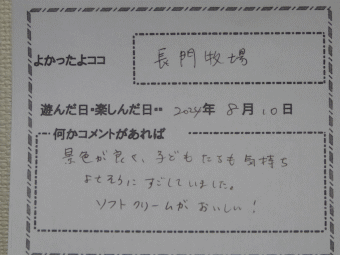 よかったよココ
長門牧場
遊んだ日・楽しんだ日・・ 2024年 8月 10日
何かコメントがあれば
景色が良く、子どもたちも気持ち
よさそうにすごしていました。
ソフトクリームがおいしい!